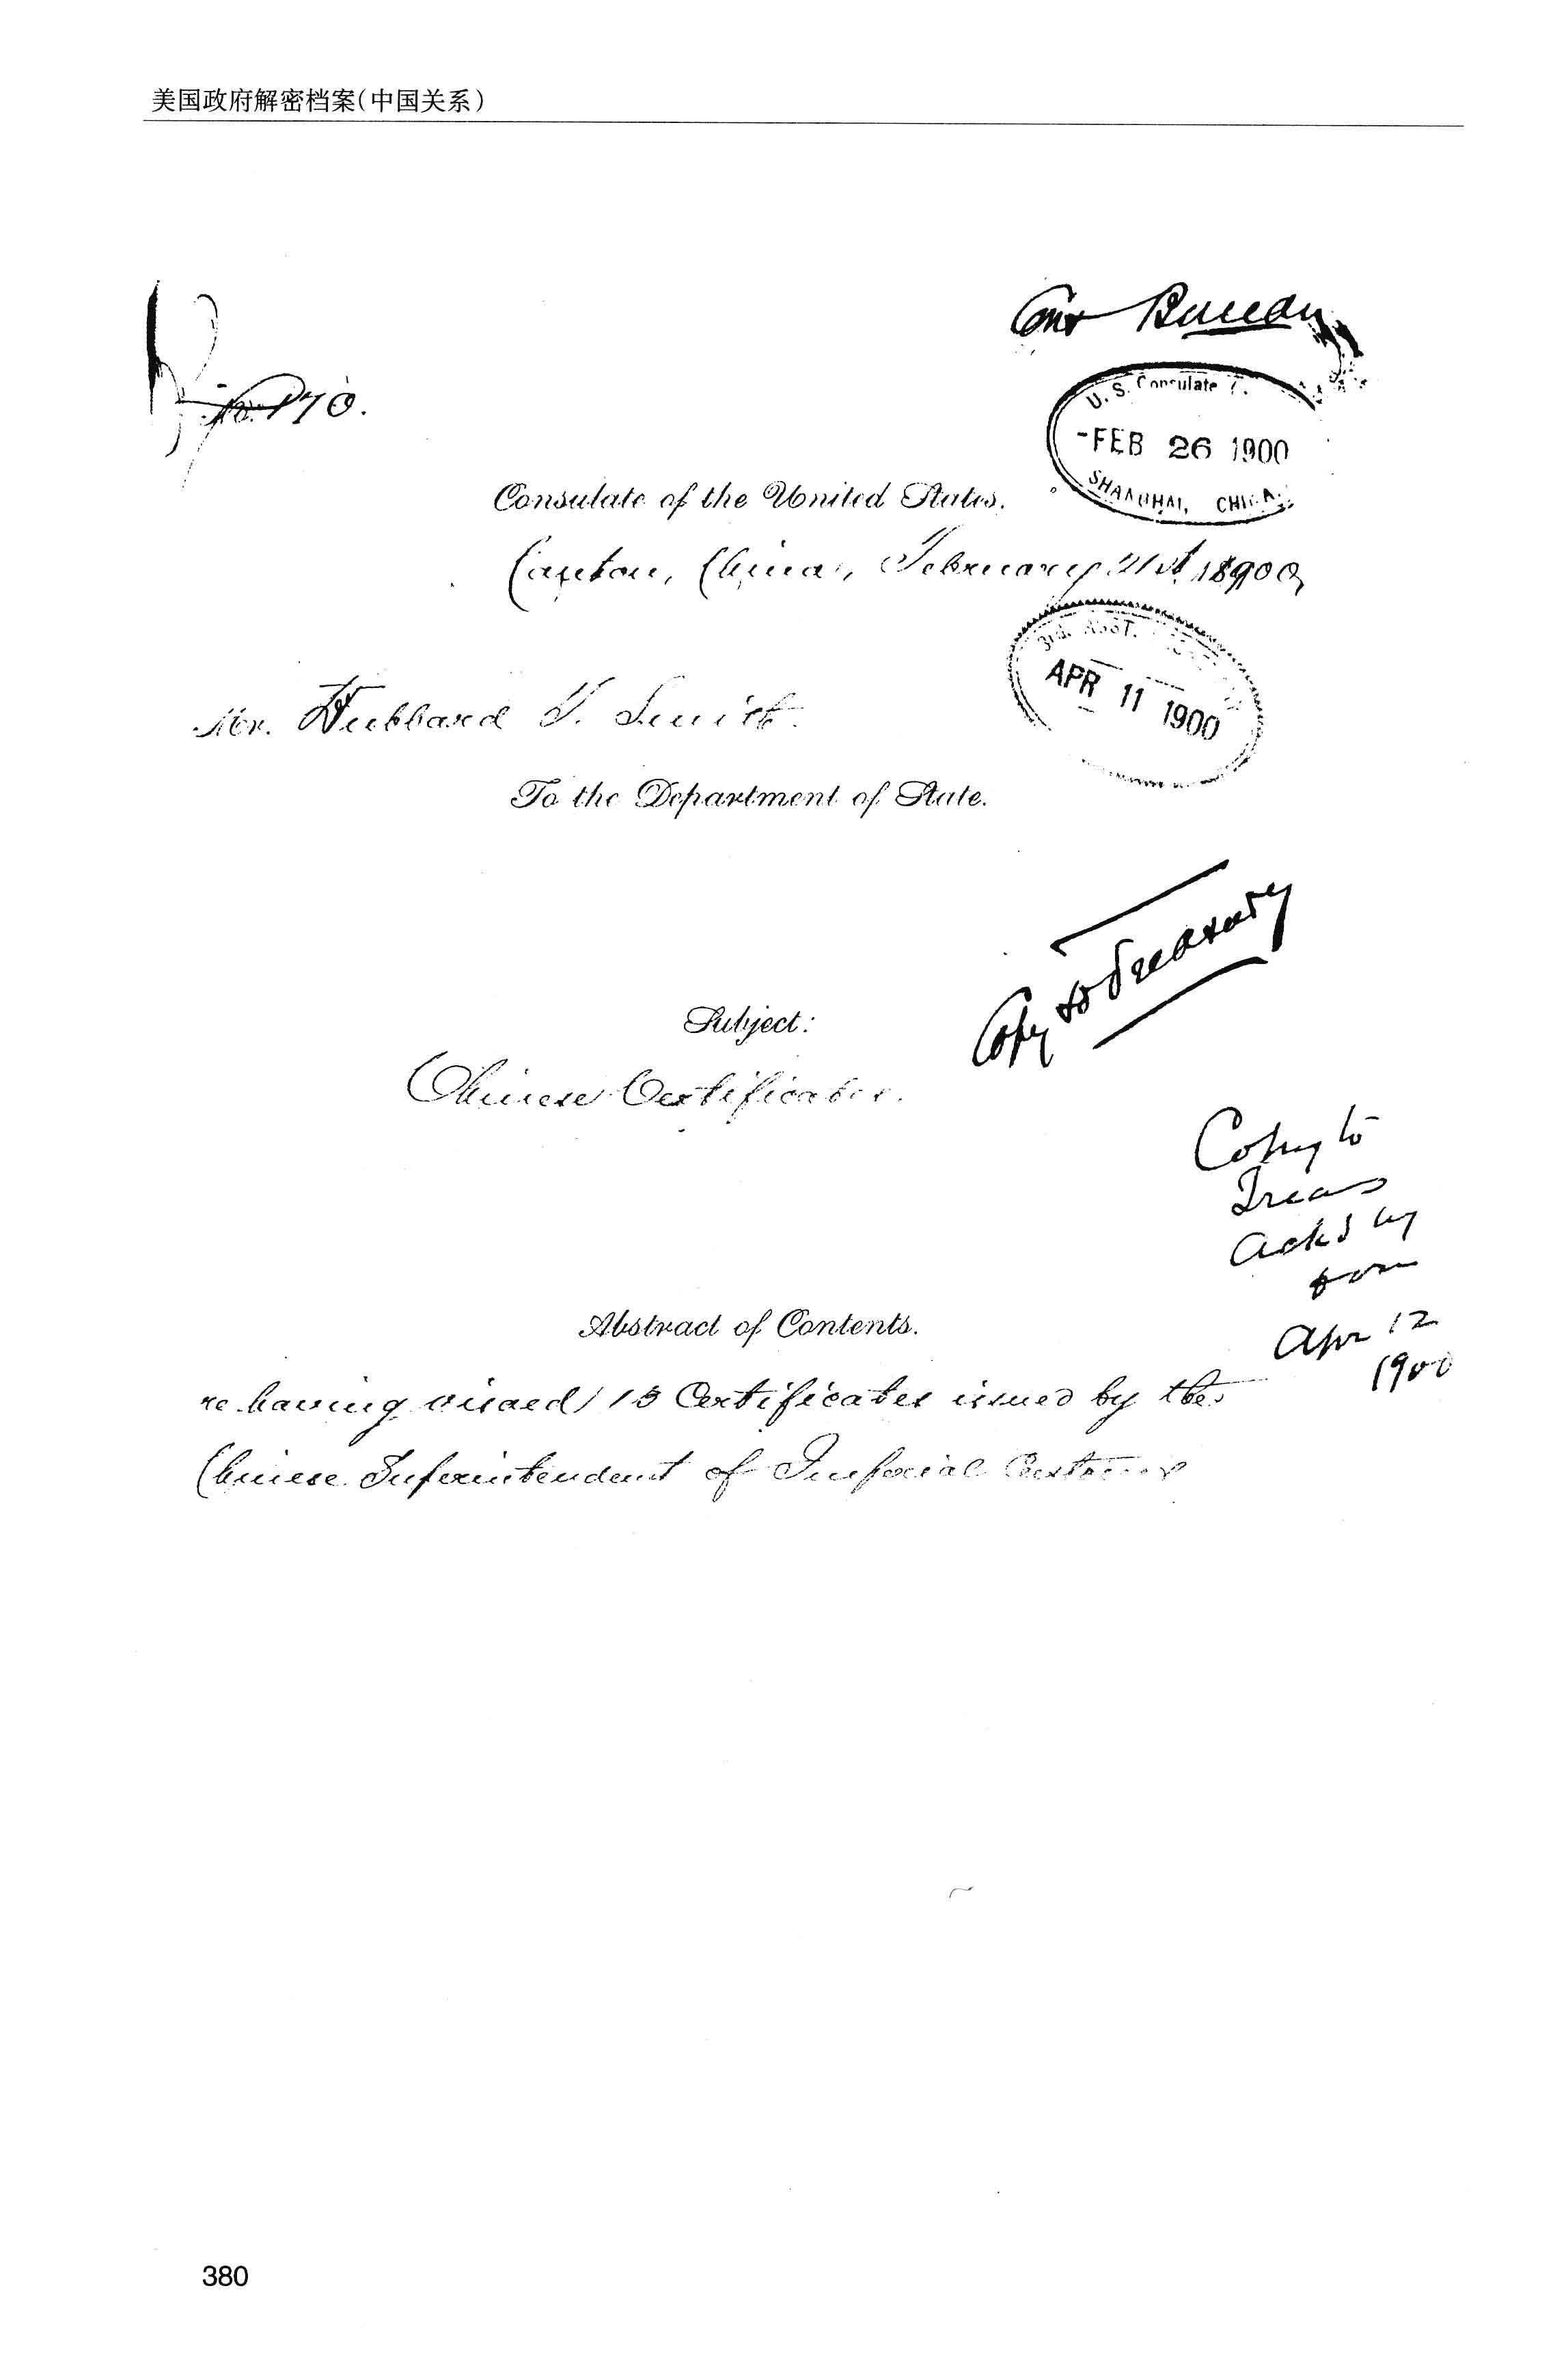 美国政府解密档案(中国关系)
Cons Bureau
No. 170.
U. S. Consulate
-FEB 26 1900
SHANGHAI, CHINA.
Consulate of the United States.
Canton, China, February 21st 18900
3rd. ASST.
APR 11 1900
Mr. Hubbard T. Smith.
To the Department of State.
Copy to Treasury
Subject:
Chinese Certificates.
Copy to
Treas
ackd by
form
Apr 12
1900
Abstract of Contents.
re having visaed 13 Certificates issued by the
Chinese Superintendent of Imperial Customs
380